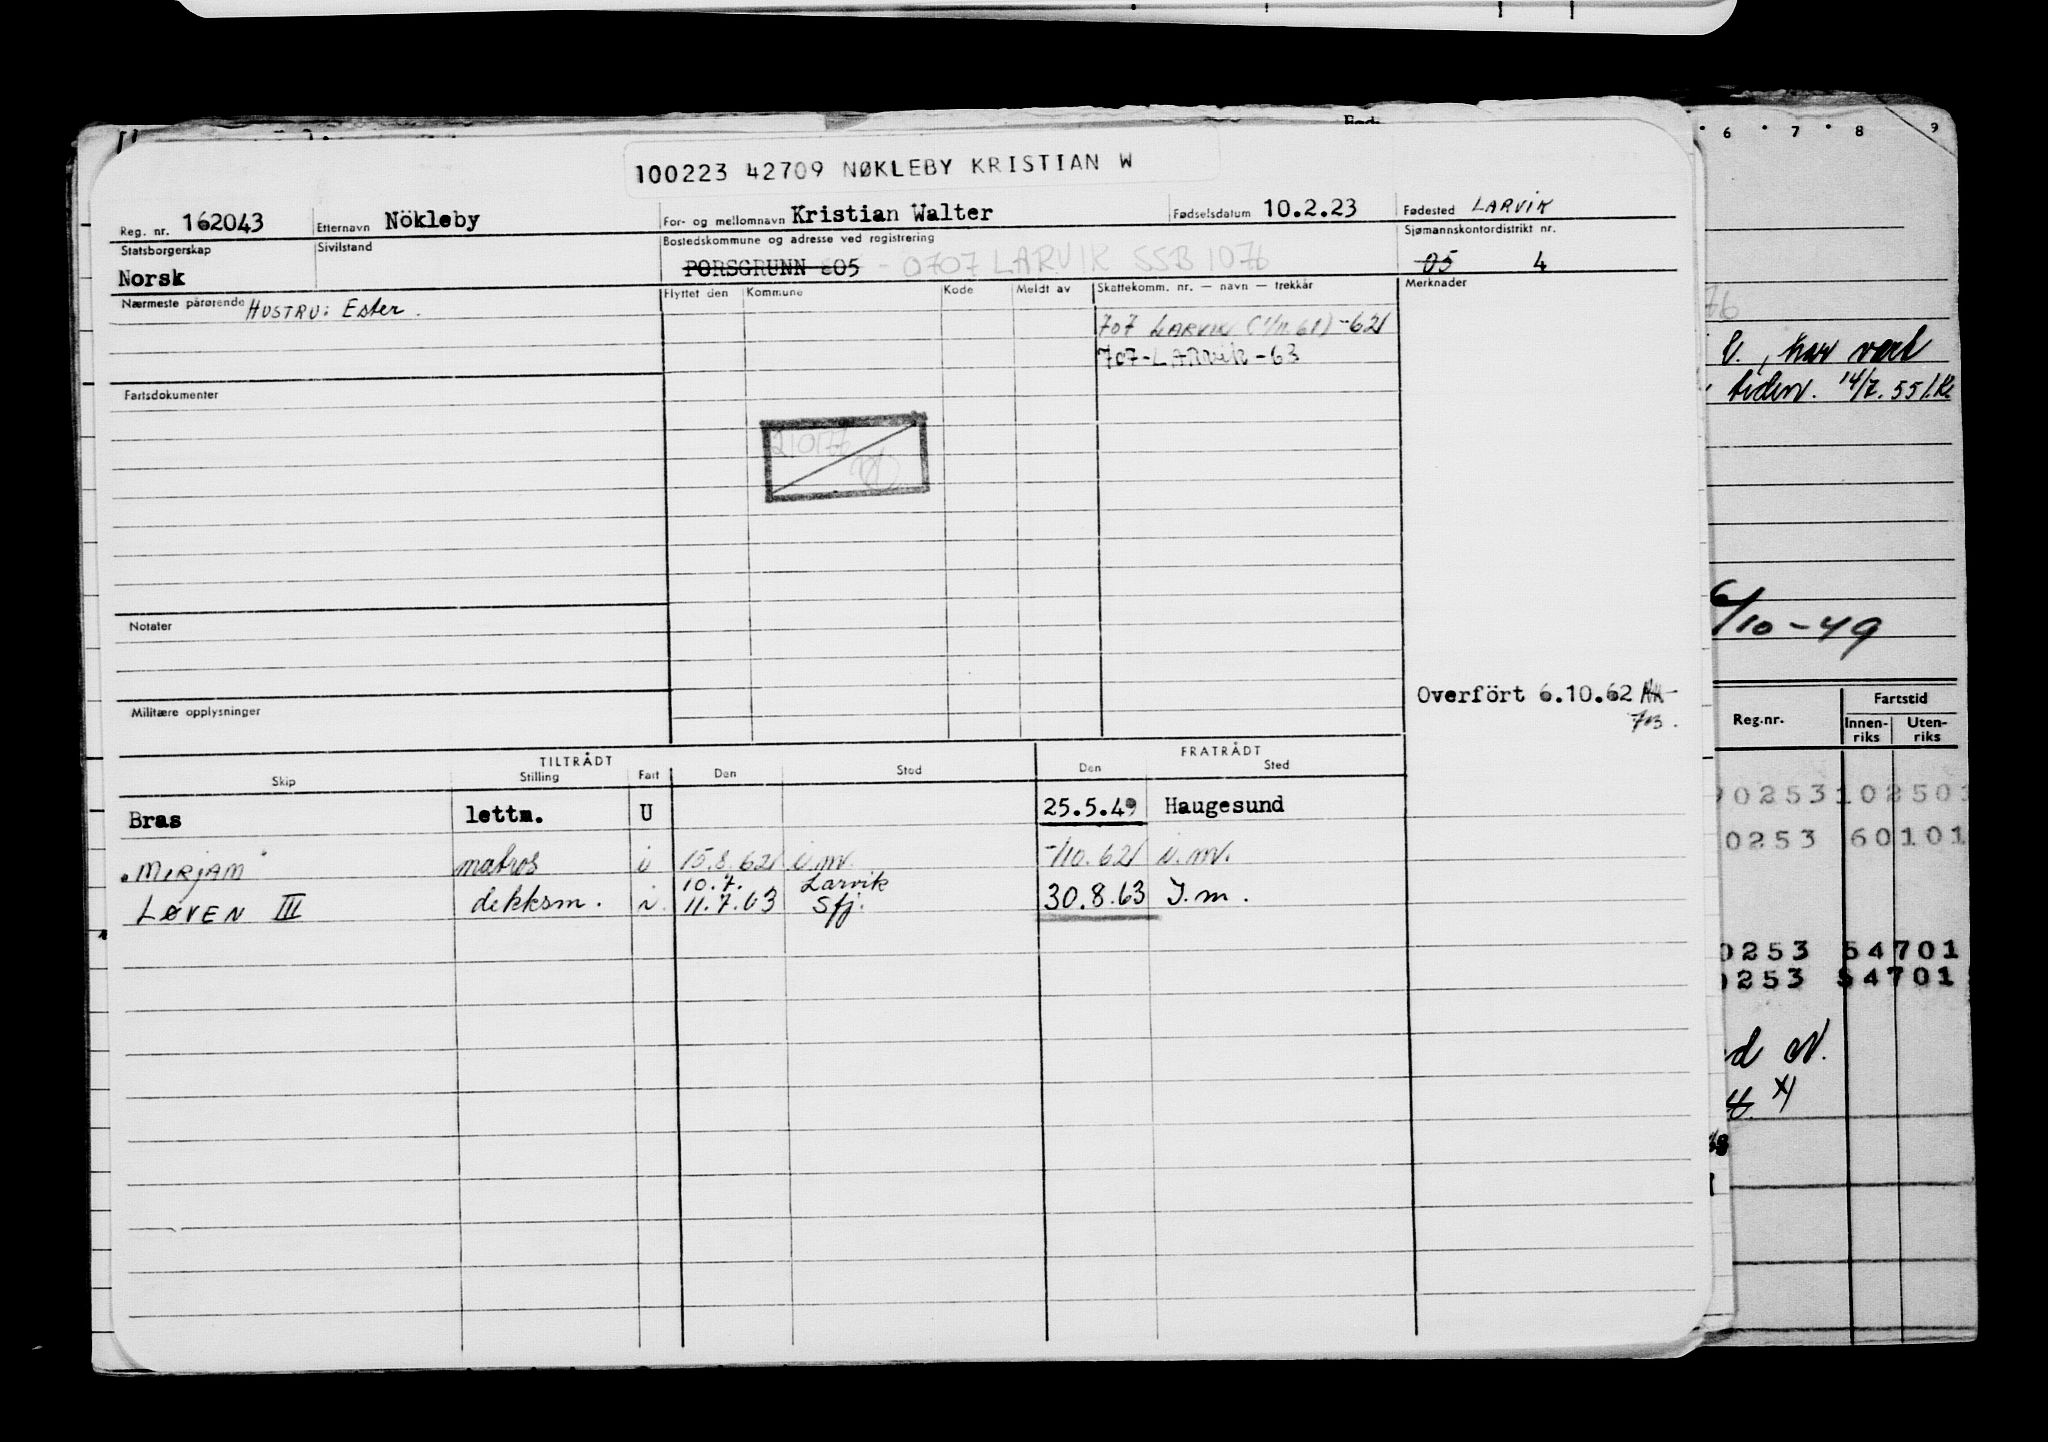 100223 42709 NØKLEBY KRISTIAN W
Reg. nr. 162043 Etternavn Nökleby For- og mellomnavn Kristian Walter Fødselsdatum 10.2.23 Fødested LARVIK
Statsborgerskap Sivilstand Bostedskommune og adresse ved registrering Sjømannskontordistrikt nr.
Norsk PORSGRUNN 805 - 0707 LARVIK SSB 1076 05 4
Nærmeste pårørende HUSTRU: Ester. Flyttet den Kommune Kode Meldt av Skattekomm. nr. — navn — trekkår Merknader
707 LARVIK (1/11 61) -62
707-LARVIK-63
Fartsdokumenter
210176
Notater
Overfört 6.10.62
703.
Militære opplysninger
TILTRÅDT FRATRÅDT
Skip Stilling Fart Den Sted Den Sted
Bras lettm. U 25.5.49 Haugesund
"MIRJAM" matros i 15.8.62 i.m. -/10.62 i.m.
10.7. Larvik
LØVEN III dekksm. i. 11.7.63 Sfj. 30.8.63 I.m.
6 7 8 9
76
, har vært
tiden. 14/7.55
6/10-49
Reg.nr. Fartstid
Innen-riks Uten-riks
90253 102503
0253 60101
0253 54701
0253 54701